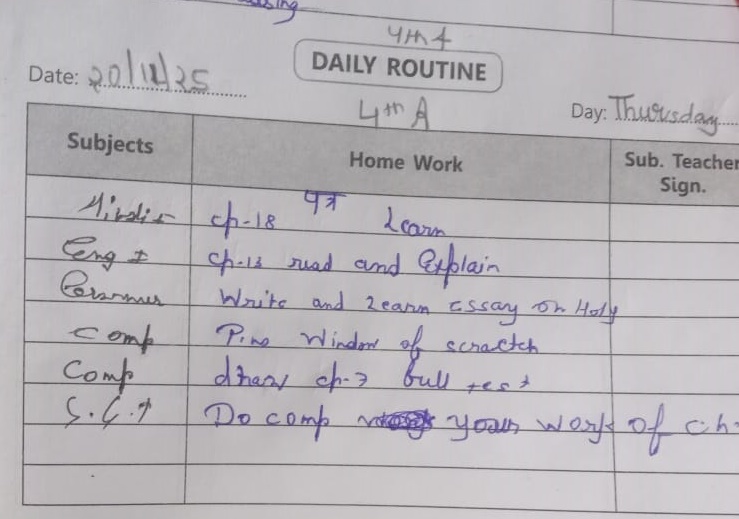 4th A
DAILY ROUTINE
Date: 20/11/25
4th A
Day: Thursday
Subjects Home Work Sub. Teacher Sign.
Hindi ch-18 पत्र Learn
Eng I ch-13 read and Explain
Write and Learn Essay on Holy
Comp P.no Window of scractch
Comp draw ch-7 full test
Do comp your work of ch-